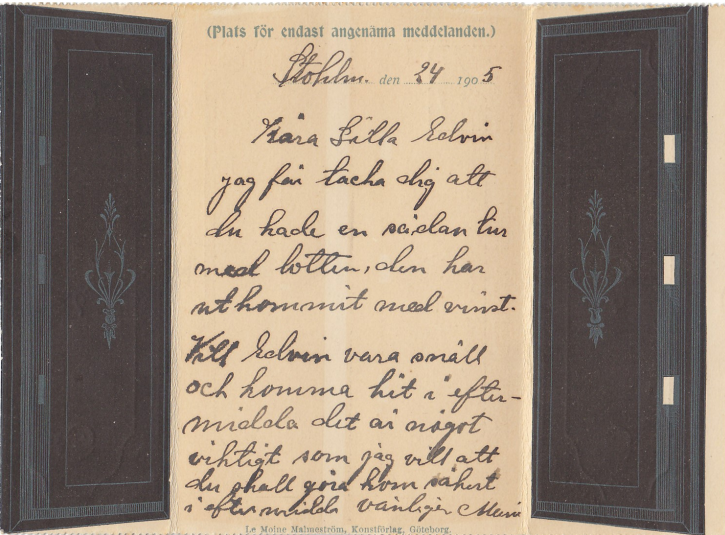 (Plats för endast angenäma meddelanden.)
Stohlm. den 24 1905
Kära Lilla Edvin
jag får tacka dig att
du hade en sådan tur
med lotten, den har
utkommit med vinst.
Vill Edvin vara snäll
och komma hit i efter-
midda det är något
viktigt som jag vill att
du skall göra kom säkert
i eftermidda vänligen
Le Moine Malmeström, Konstförlag, Göteborg.